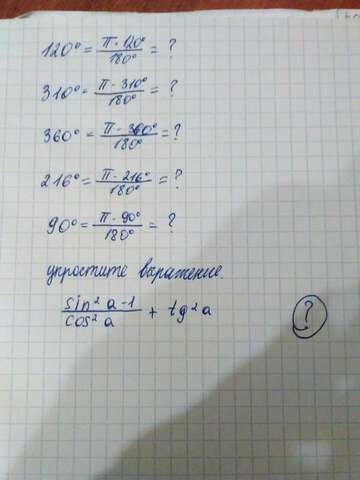 120° = π · 120° / 180° = ?
310° = π - 310° / 180° = ?
360° = π - 360° / 180° = ?
216° = π - 216° / 180° = ?
90° = π - 90° / 180° = ?
упростите выражение.
sin² a - 1 / cos² a + tg² a ?